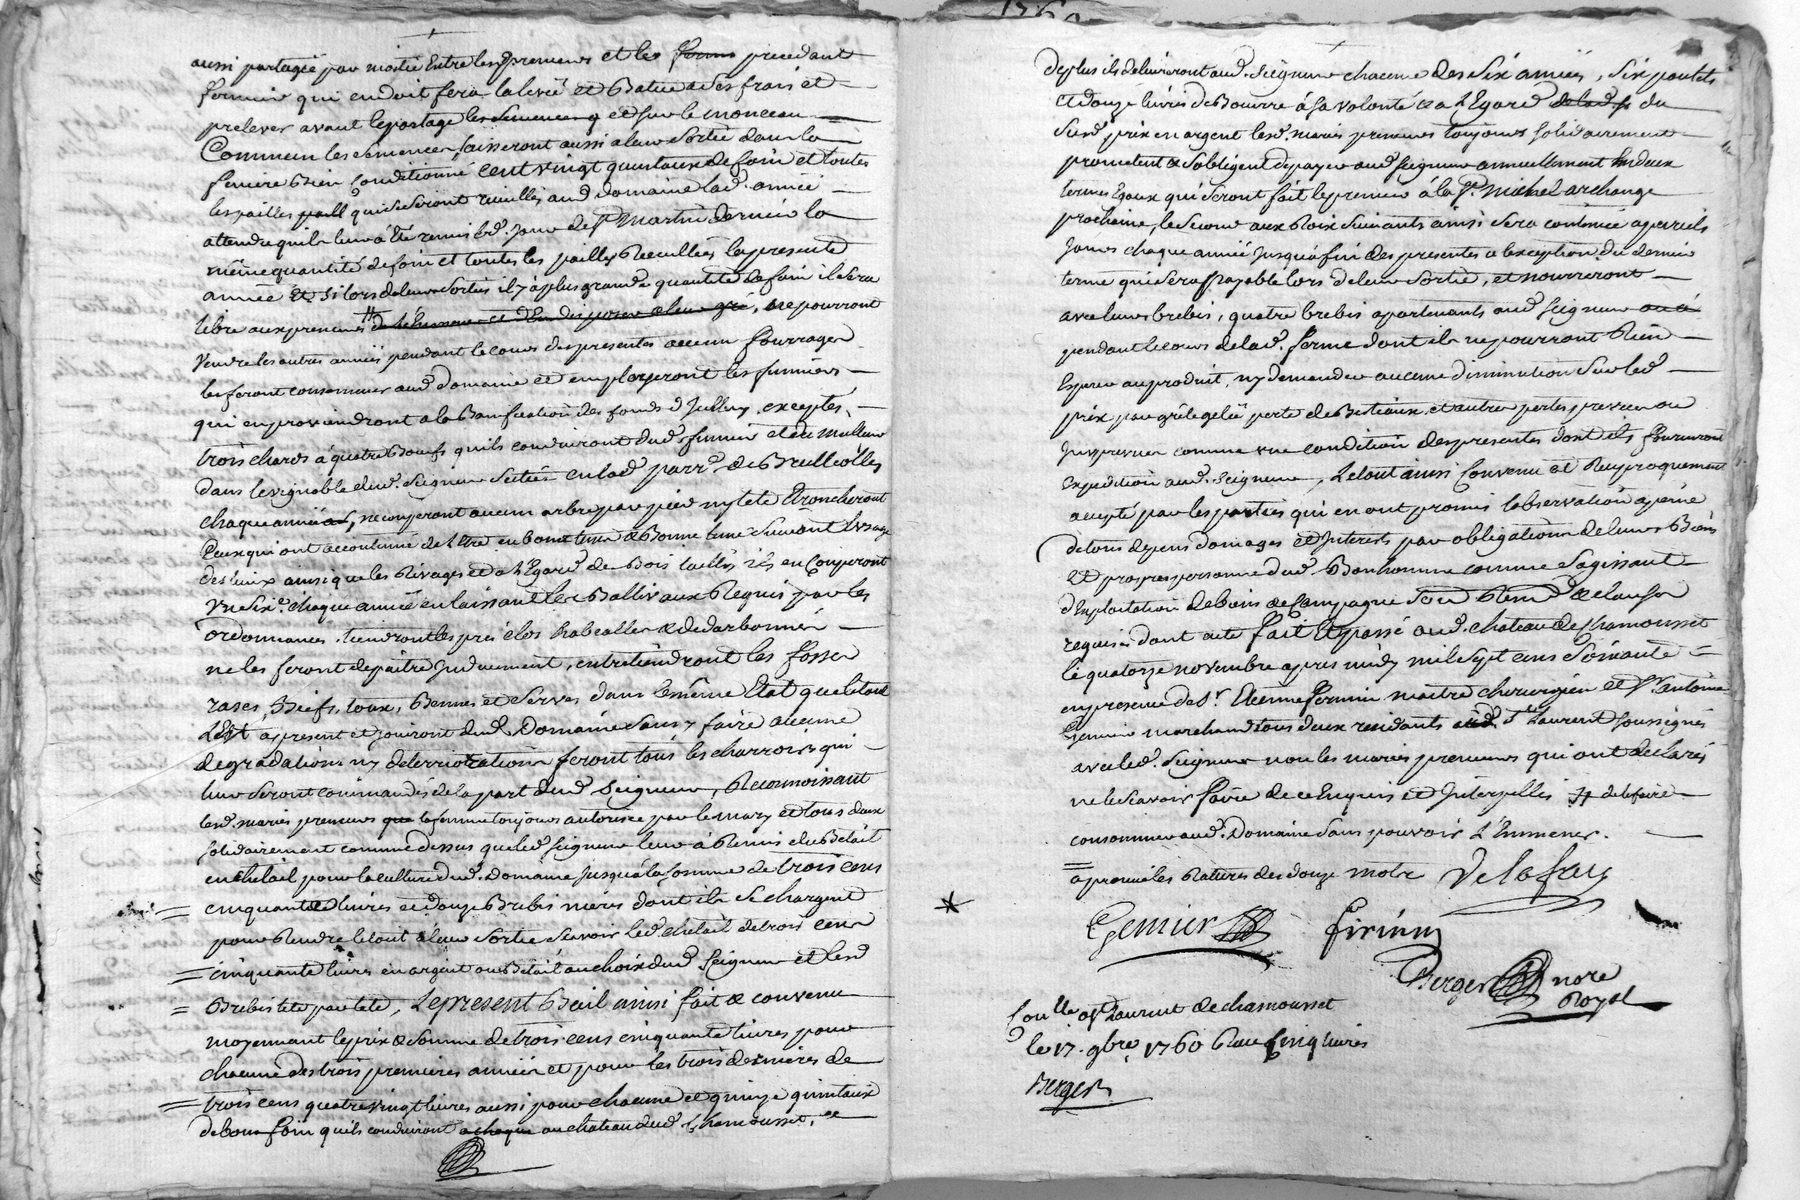 1760
aussi partagée par moitié Entre lesd preneurs et les ferme precedant
fermier qui en doit fera la levée et Batue a ses frais et
prelever avant le partage les semences q et sur le monceau
Commun les semences, laisseront aussi a leur sortie dans la
feniere Bien Conditionné cent vingt quintaux de foin et toutes
les pailles paill qui se seront recuillies aud domaine lad. année
attendu qu'il leur a été remis led. jour de St Martin dernier la
même quantité de foin et toutes les pailles Recuillies la presente
année Et si lors de leur sortie il y a plus grande quantité de foin il sera
libre aux preneurs # de l'Emmener et d'En disposer a leur gré, ne pourront
Vendre les autres années pendant le cours des presentes aucun fourrages
les feront consommer aud domaine et employeront les fumiers
qui en proviendront a la Bonification des fonds d'Jcelluy, exceptés
trois chards a quatre Boeufs qu'ils conduiront dud fumier et du meilleur
dans le vignoble dud. Seigneur Scitué en lad parr.e de Brullioles
chaque année, ne couperont aucun arbre par pied ny tete Etroncheront
Ceux qui ont accoutumé de l'Etre en bon tems & Bonne lune Suivant l'usage
des lieux ainsi que les Rivages et a l'Egard de Bois taillis ils en Couperont
Un Six.e chaque année en laissant les Balliveaux Requis par les
ordonnances. tiendront les prés clos
ne les feront depaitre Induement, entretiendront les fosses
rases, Biefs, Bennes et Serves dans le même Etat que le tout
Est apresent et jouiront dud Domaine sans y faire aucune
degradation ny deterrioration feront tous les charrois qui
leur seront commandés de la part dud Seigneur, Reconnoissant
lesd. mariés preneurs que la femme toujours autorisée par le mary et tous deux
Solidairement comme dessus que led seigneur leur a Remis du Betail
en chetail pour la culture dud. Domaine jusqu'a la somme de trois cens
cinquante livres et douze Brebis meres dont ils se chargent
pour Rendre le tout a leur Sortie Scavoir led chetail de trois cens
cinquante livres en argent ou Betail au choix dud Seigneur et lesd
Brebis tete par tete, Le present Bail ainsi fait & convenu
moyennant le prix & somme de trois cens cinquante livres pour
chacune des trois premieres années et pour les trois dernieres de
trois cens quatre vingt livres aussi pour chacune et quinze quintaux
de bon foin qu'ils conduiront a chaque au chateau dud Chamousset.
deplus ils delivreront aud. Seigneur chacune des Six années, Six poulets
et douze livres de Beurre à sa volonté et a l'Egard de lad p du
susd prix en argent lesd. mariés preneurs toujours solidairement
promettent & s'obligent de payer aud Seigneur annuellement En deux
termes Egaux qui seront fait le premier à la St Michel archange
prochaine, le second aux Rois Suivants ainsi sera continué a pareils
jours chaque année jusqu'a fin des presentes a l'exception du dernier
terme qui sera payable lors de leur Sortie, et nourriront
avec leurs brebis, quatre brebis apartenants aud Seigneur
pendant le cours de lad. ferme dont ils ne pourront Rien
Esperer au produit, ny demander aucune diminution sur led
prix par grêle gelée perte de Bestiaux et autres pertes prevues ou
Inprevues comme une condition des presentes dont ils fourniront
expedition aud. Seigneur, Le tout ainsi Convenu et Reciproquement
accepté par les parties qui en ont promis l'observation a peine
de tous depens domages et Interests par obligation de leurs Biens
Et propres personne dud. Bonhomme comme s'agissant
d'Exploitation de biens de Campagne & clauses
requises dont acte fait Et passé aud. chateau de Chamousset
le quatorze novembre apres midy mil sept cens soixante =
en presence de Sr. Etienne fermin maitre chirurgien et Sr antoine
Gemier marchand tous deux residants aud St Laurent soussignés
avec led. Seigneur non les mariés preneurs qui ont declarés
ne le Scavoir faire de ce Enquis et Interpellés # de le faire
consommer aud. Domaine sans pouvoir L'Emmener.
= approuvé les Ratures de douze mots Delafay
Gemier firmin
Berger nore
Royal
Conllé a St Laurent de chamousset
le 17. 9bre. 1760 Recu Cinq livres
Berger